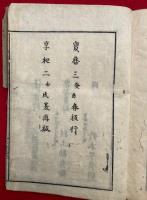 寶暦三癸酉春板行
享和二壬戌夏再板